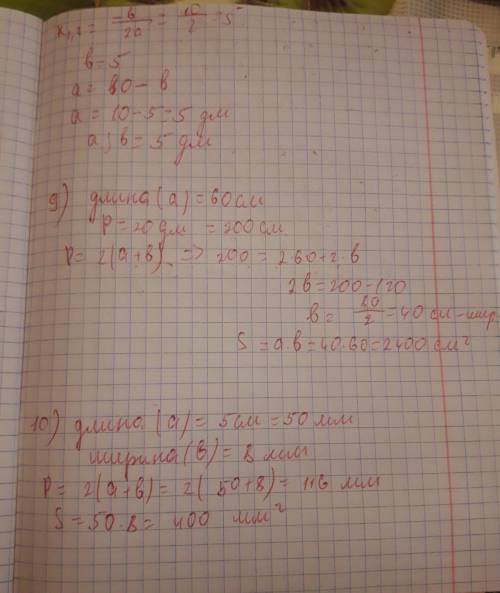 x₁,₂ = b/2a = 10/2 = 5
b = 5
a = 10 - b
a = 10 - 5 = 5 дм
a; b = 5 дм
9) длина (a) = 60 см
P = 20 дм = 200 см
P = 2(a+b) => 200 = 2·60+2·b
2b = 200 - 120
b = 80/2 = 40 см - шир.
S = a·b = 40·60 = 2400 см²
10) длина (a) = 5 см = 50 мм
ширина (b) = 8 мм
P = 2(a+b) = 2(50+8) = 116 мм
S = 50·8 = 400 мм²